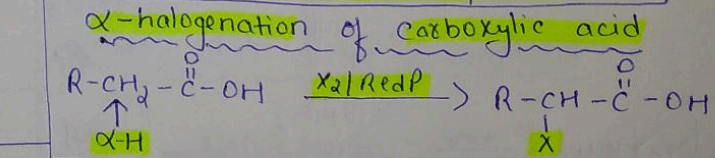 α-halogenation of carboxylic acid
O O
R-CH₂-C-OH X₂/Red P R-CH-C-OH
α-H X